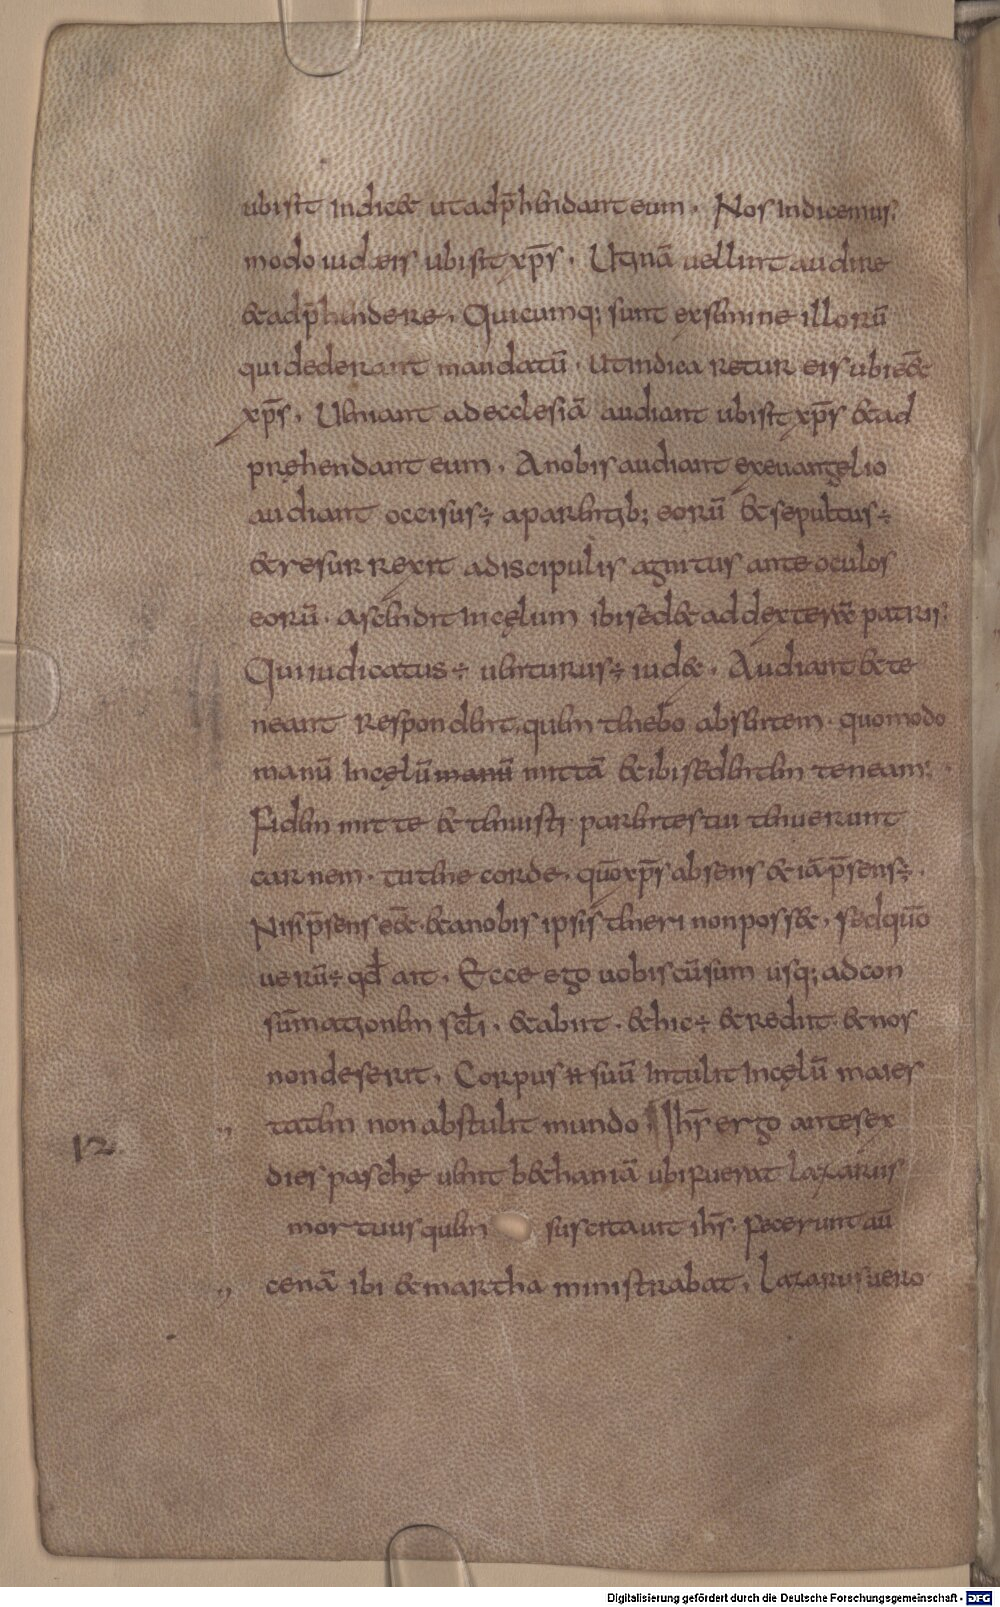 ubisit indicet utadp̄hendant eum. Nos indicemus
modo iudæis ubisit xp̄s. Utinā vellint audire
&adp̄hendere. Quicumq; sunt exsemine illorū
quidederant mandatū. utindicaretur eis ubiēet
xp̄s. Veniant adecclesiā audiant ubisit xp̄s &ad
pręhendant eum. Anobis audiant exeuangelio
audiant occisus ÷ aparentib; eorū &sepultus ÷
&resurrexit adiscipulis agnitus ante oculos
eorū. ascendit incęlum ibised& ad dexterā patris.
Qui iudicatus ÷ uenturus ÷ iudex. Audiant &te
neant respondent. quem tenebo absentem. quomodo
manū incęlū manū mittā &ibi sedentem teneam.
Fidem mitte & tenuisti. parentes tui tenuerunt
carnem. tu tene corde. quō xp̄s absens & iā p̄sens ÷.
Nisi p̄sens ēet &anobis ipsis teneri nonposset. sed quō
uerū ÷ qđ ait. Ecce ego uobiscū sum usq; adcon
sūmationem scłi. &abiit. &hic ÷ &rediit. &nos
nondeserit. Corpus n suū intulit incęlū maies
tatem non abstulit mundo. Ihs̄ ergo antesex
12
dies paschę uenit b&haniā ubi fuerat lazarus
mortuus quem suscitauit ihs̄. fecerunt aū
cenā ibi &martha ministrabat. lazarus uero
Digitalisierung gefördert durch die Deutsche Forschungsgemeinschaft - DFG